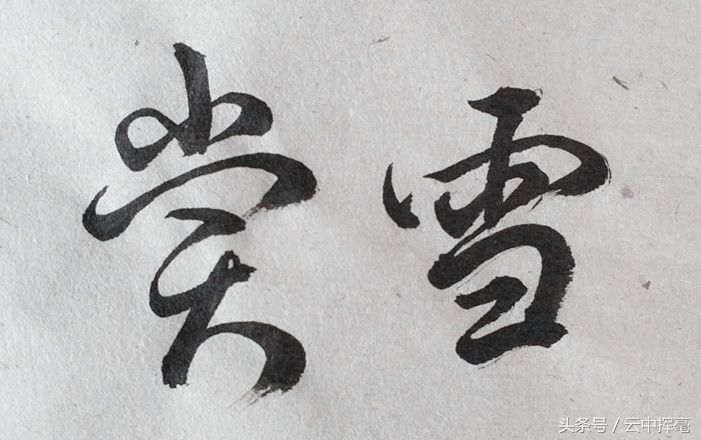 赏雪
头条号／云中挥毫